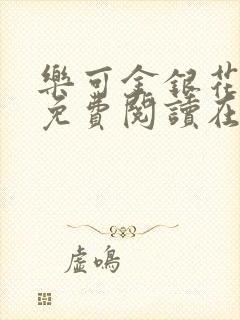 樂可金銀花
免費閱讀在
虛鳴